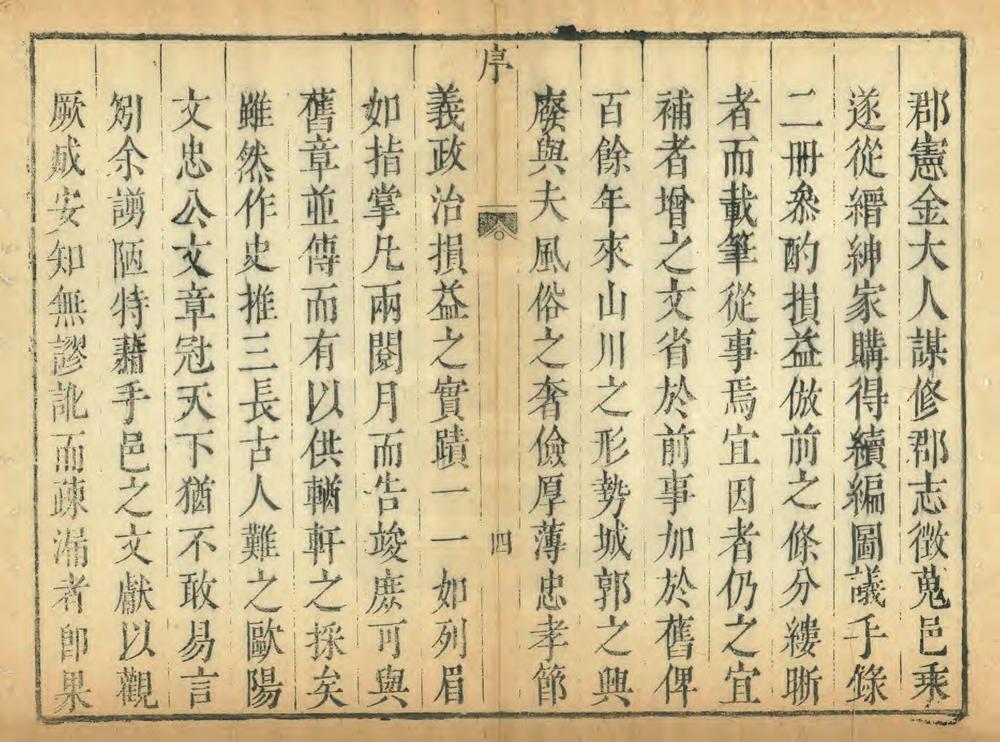 郡憲金大人謀修郡志徵蒐邑乘
遂從縉紳家購得續編圖議手錄
二冊叅酌損益倣前之條分縷晰
者而載筆從事焉宜因者仍之宜
補者增之文省於前事加於舊俾
百餘年來山川之形勢城郭之興
廢與夫風俗之奢儉厚薄忠孝節
序
四
義政治損益之實蹟一一如列眉
如指掌凡兩閱月而告竣庶可與
舊章並傳而有以供輶軒之採矣
雖然作史推三長古人難之歐陽
文忠公文章冠天下猶不敢易言
矧余謭陋特藉手邑之文獻以觀
厥成安知無謬訛而疎漏者卽果